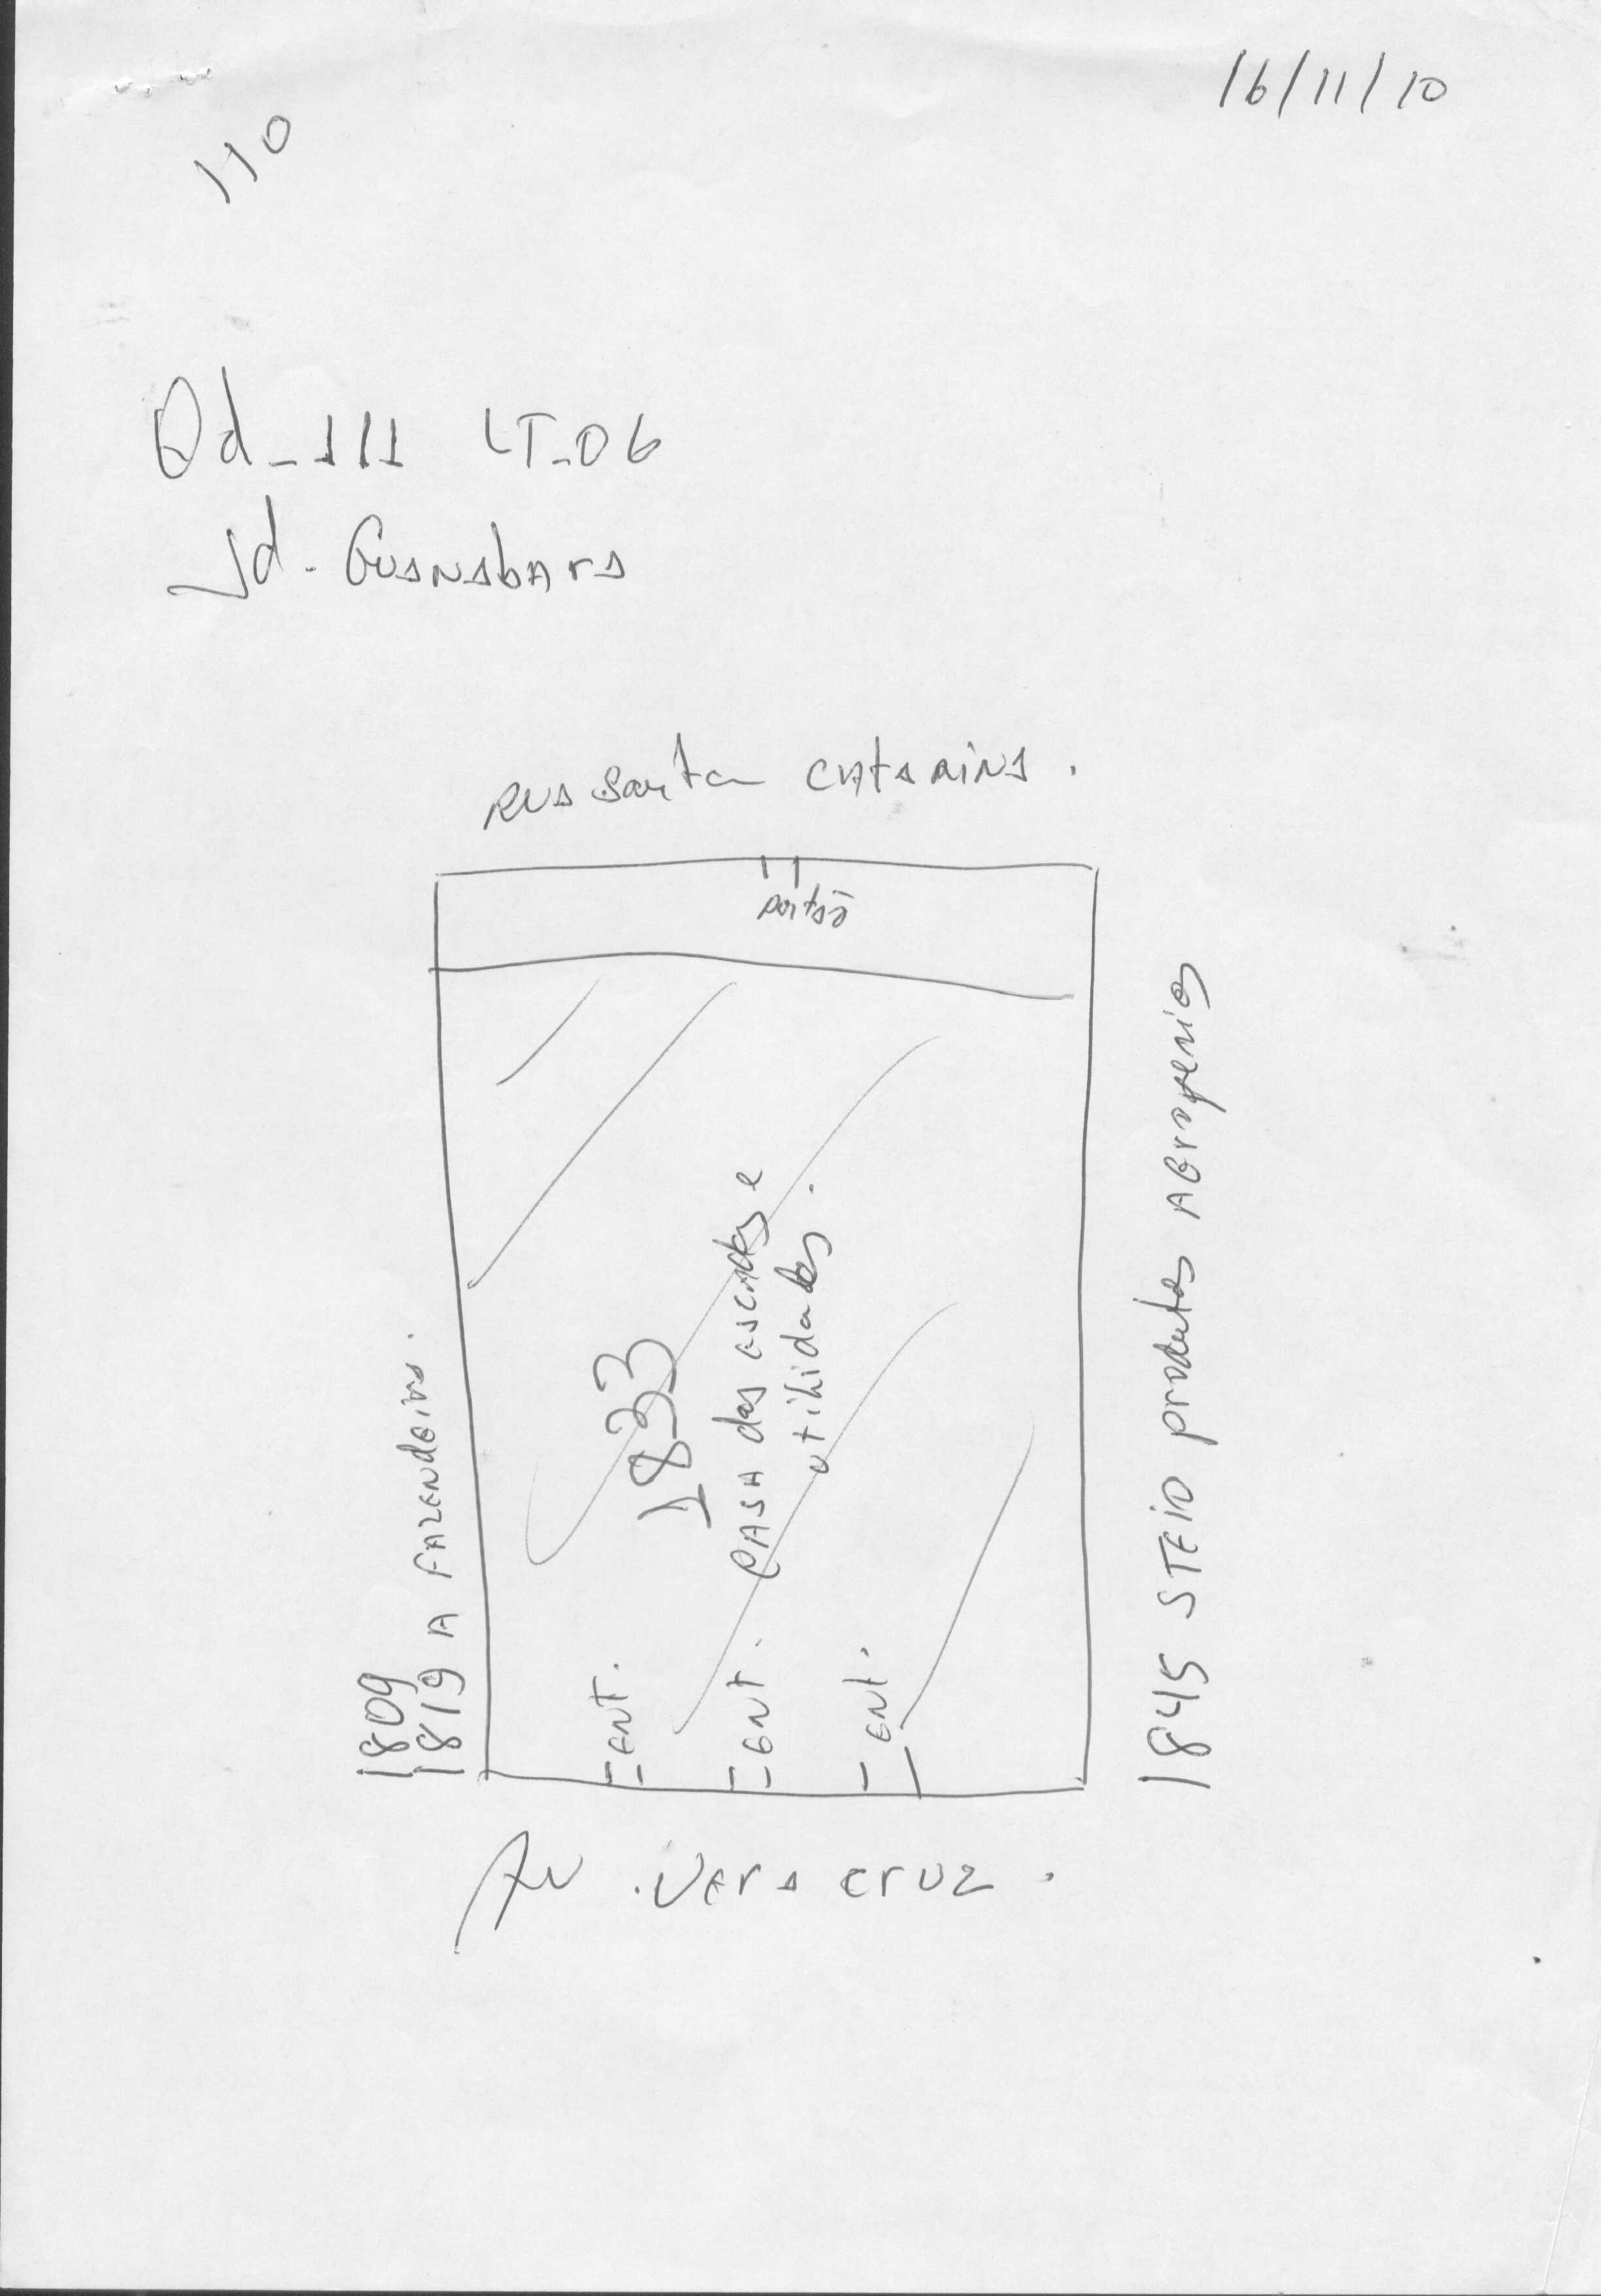 16/11/10
110
Qd-111 LT-06
Jd. Guanabara
Rua Santa Catarina.
portão
1809
1819 A Fazendeira.
1833
Casa das escadas e
utilidades.
ent.
ent.
ent.
1845 STEIO produtos Agropenios
Av. Vera Cruz.